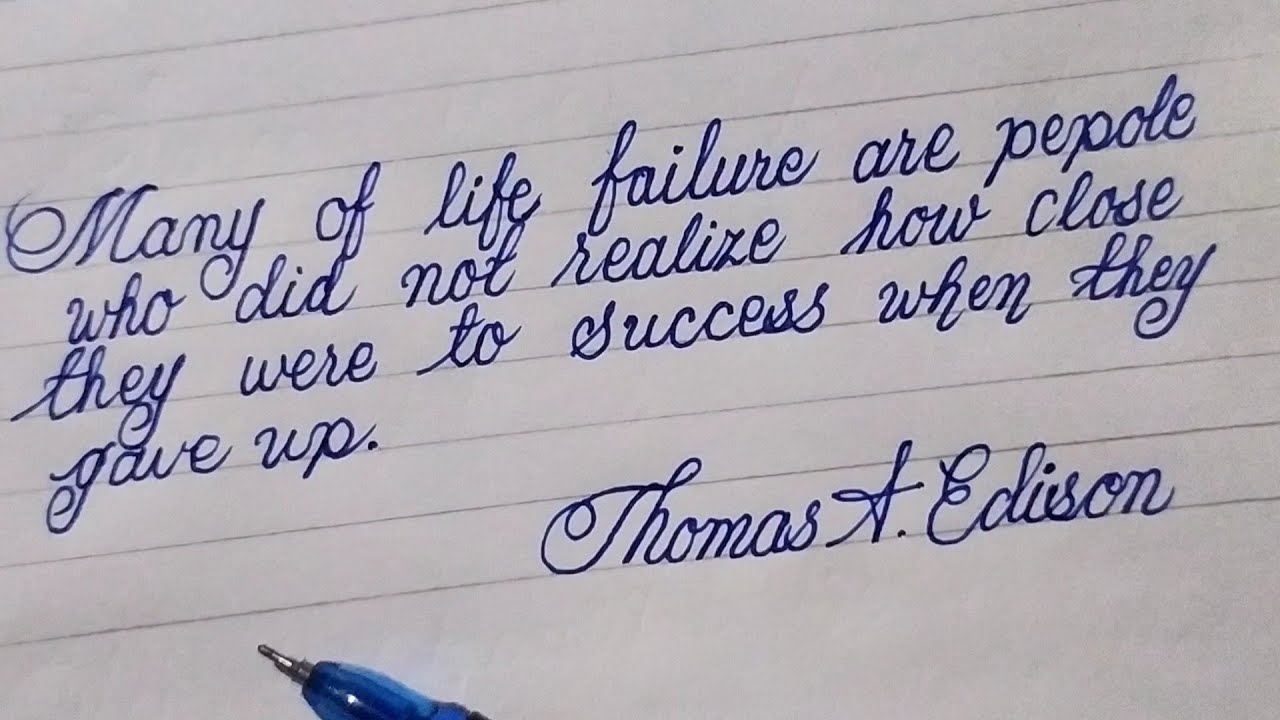 Many of life failure are pepole
who did not realize how close
they were to success when they
gave up.
Thomas A. Edison